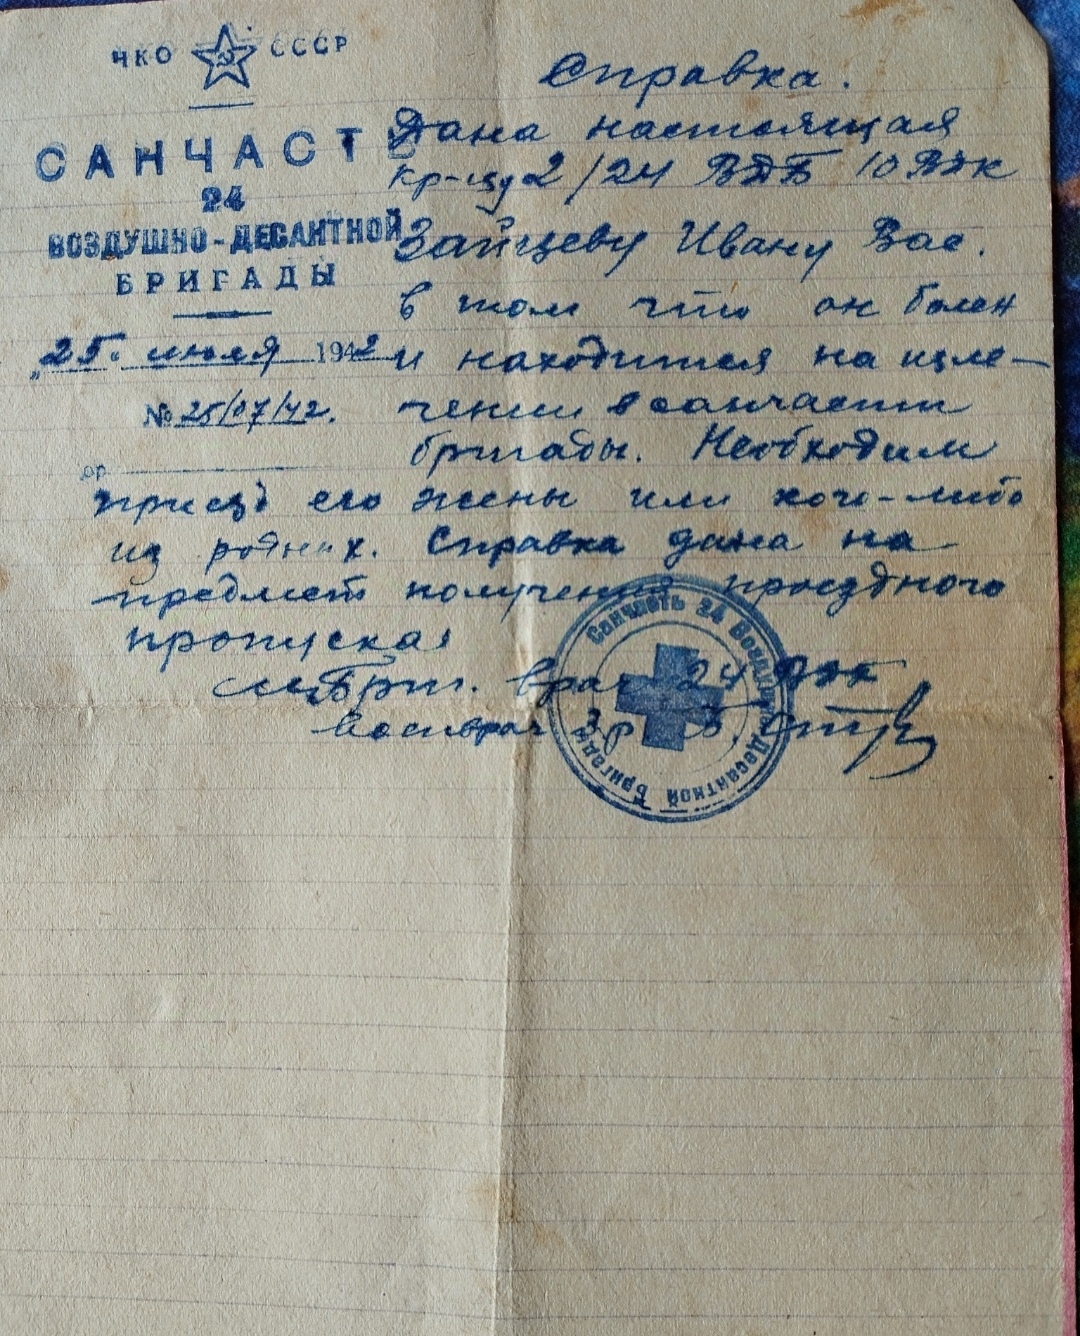 НКО СССР
САНЧАСТЬ
24
ВОЗДУШНО-ДЕСАНТНОЙ
БРИГАДЫ
„25" июля 1942
№ 25/07/42.
Справка.
Дана настоящая
кр-цу 2/24 ВДБ 10 ВДК
Зайцеву Ивану Вас.
в том что он болен
и находится на изле-
чении в санчасти
бригады. Необходим
приезд его жены или кого-либо
из родных. Справка дана на
предмет получения проездного
пропуска
Бриг. врач 24
Военврач 3 р
Санчасть 24 Воздушно Десантной Бригады